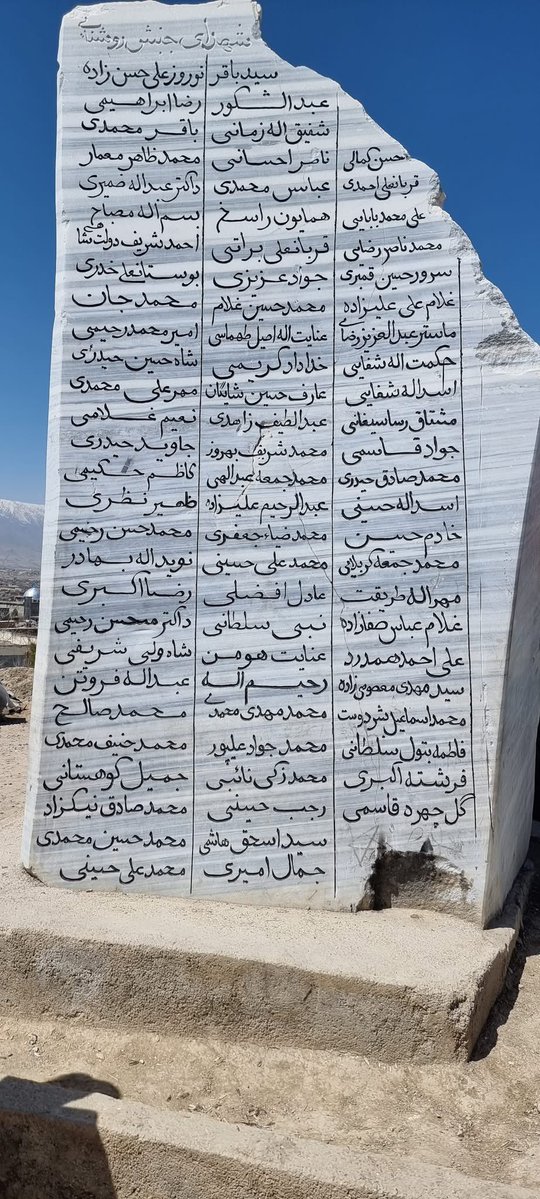 شهدای جنبش روشنایی
حسن کمالی
قربانعلی احمدی
علی محمد بابایی
محمد ناصر رضایی
سرور حسین قمبری
غلام علی علیزاده
ماستر عبدالعزیز رضایی
حکمت اله شفایی
اسداله شفایی
مشتاق رسا سیغانی
جواد قاسمی
محمد صادق حیدری
اسداله حسینی
خادم حسین
محمد جمعه کربلایی
مهراله طریقت
غلام عباس صفازاده
علی احمد همدرد
سید مهدی معصومی زاده
محمد اسماعیل بشردوست
فاطمه بتول سلطانی
فرشته اکبری
گل چهره قاسمی
سید باقر
عبدالشکور
شفیق اله زمانی
ناصر احسانی
عباس محمدی
همایون راسخ
قربانعلی براتی
جواد عزیزی
محمد حسن غلام
عنایت اله اصیل طهماسی
خداداد کریمی
عارف حسین شایگان
عبدالطیف زاهدی
محمد شریف بهروز
محمد جمعه عبدالهی
عبدالرحیم علیزاده
محمد ضاء جعفری
محمد علی حسینی
عادل افضلی
نبی سلطانی
عنایت هومن
رحیم اله
محمد مهدی محمدی
محمد جواد علیپور
محمد زکی نائبی
رجب حسینی
سید اسحق هاشمی
جمال امیری
نوروز علی حسن زاده
رضا ابراهیمی
باقر محمدی
محمد ظاهر معمار
داکتر عبداله ضمیری
بسم اله مصباح
احمد شریف دولت شا
بوستانعلی حیدری
محمد جان
امیر محمد رحیمی
شاه حسین حیدری
مهر علی محمدی
نعیم غلامی
جاوید حیدری
کاظم حکیمی
ظهیر نظری
محمد حسن رحیمی
نوید اله بهادر
رضا اکبری
داکتر محسن رحیمی
شاه ولی شریفی
عبداله فروتن
محمد صالح
محمد حنیف محمدی
جمیل کوهستانی
محمد صادق نیکزاد
محمد حسین محمدی
محمد علی حسینی